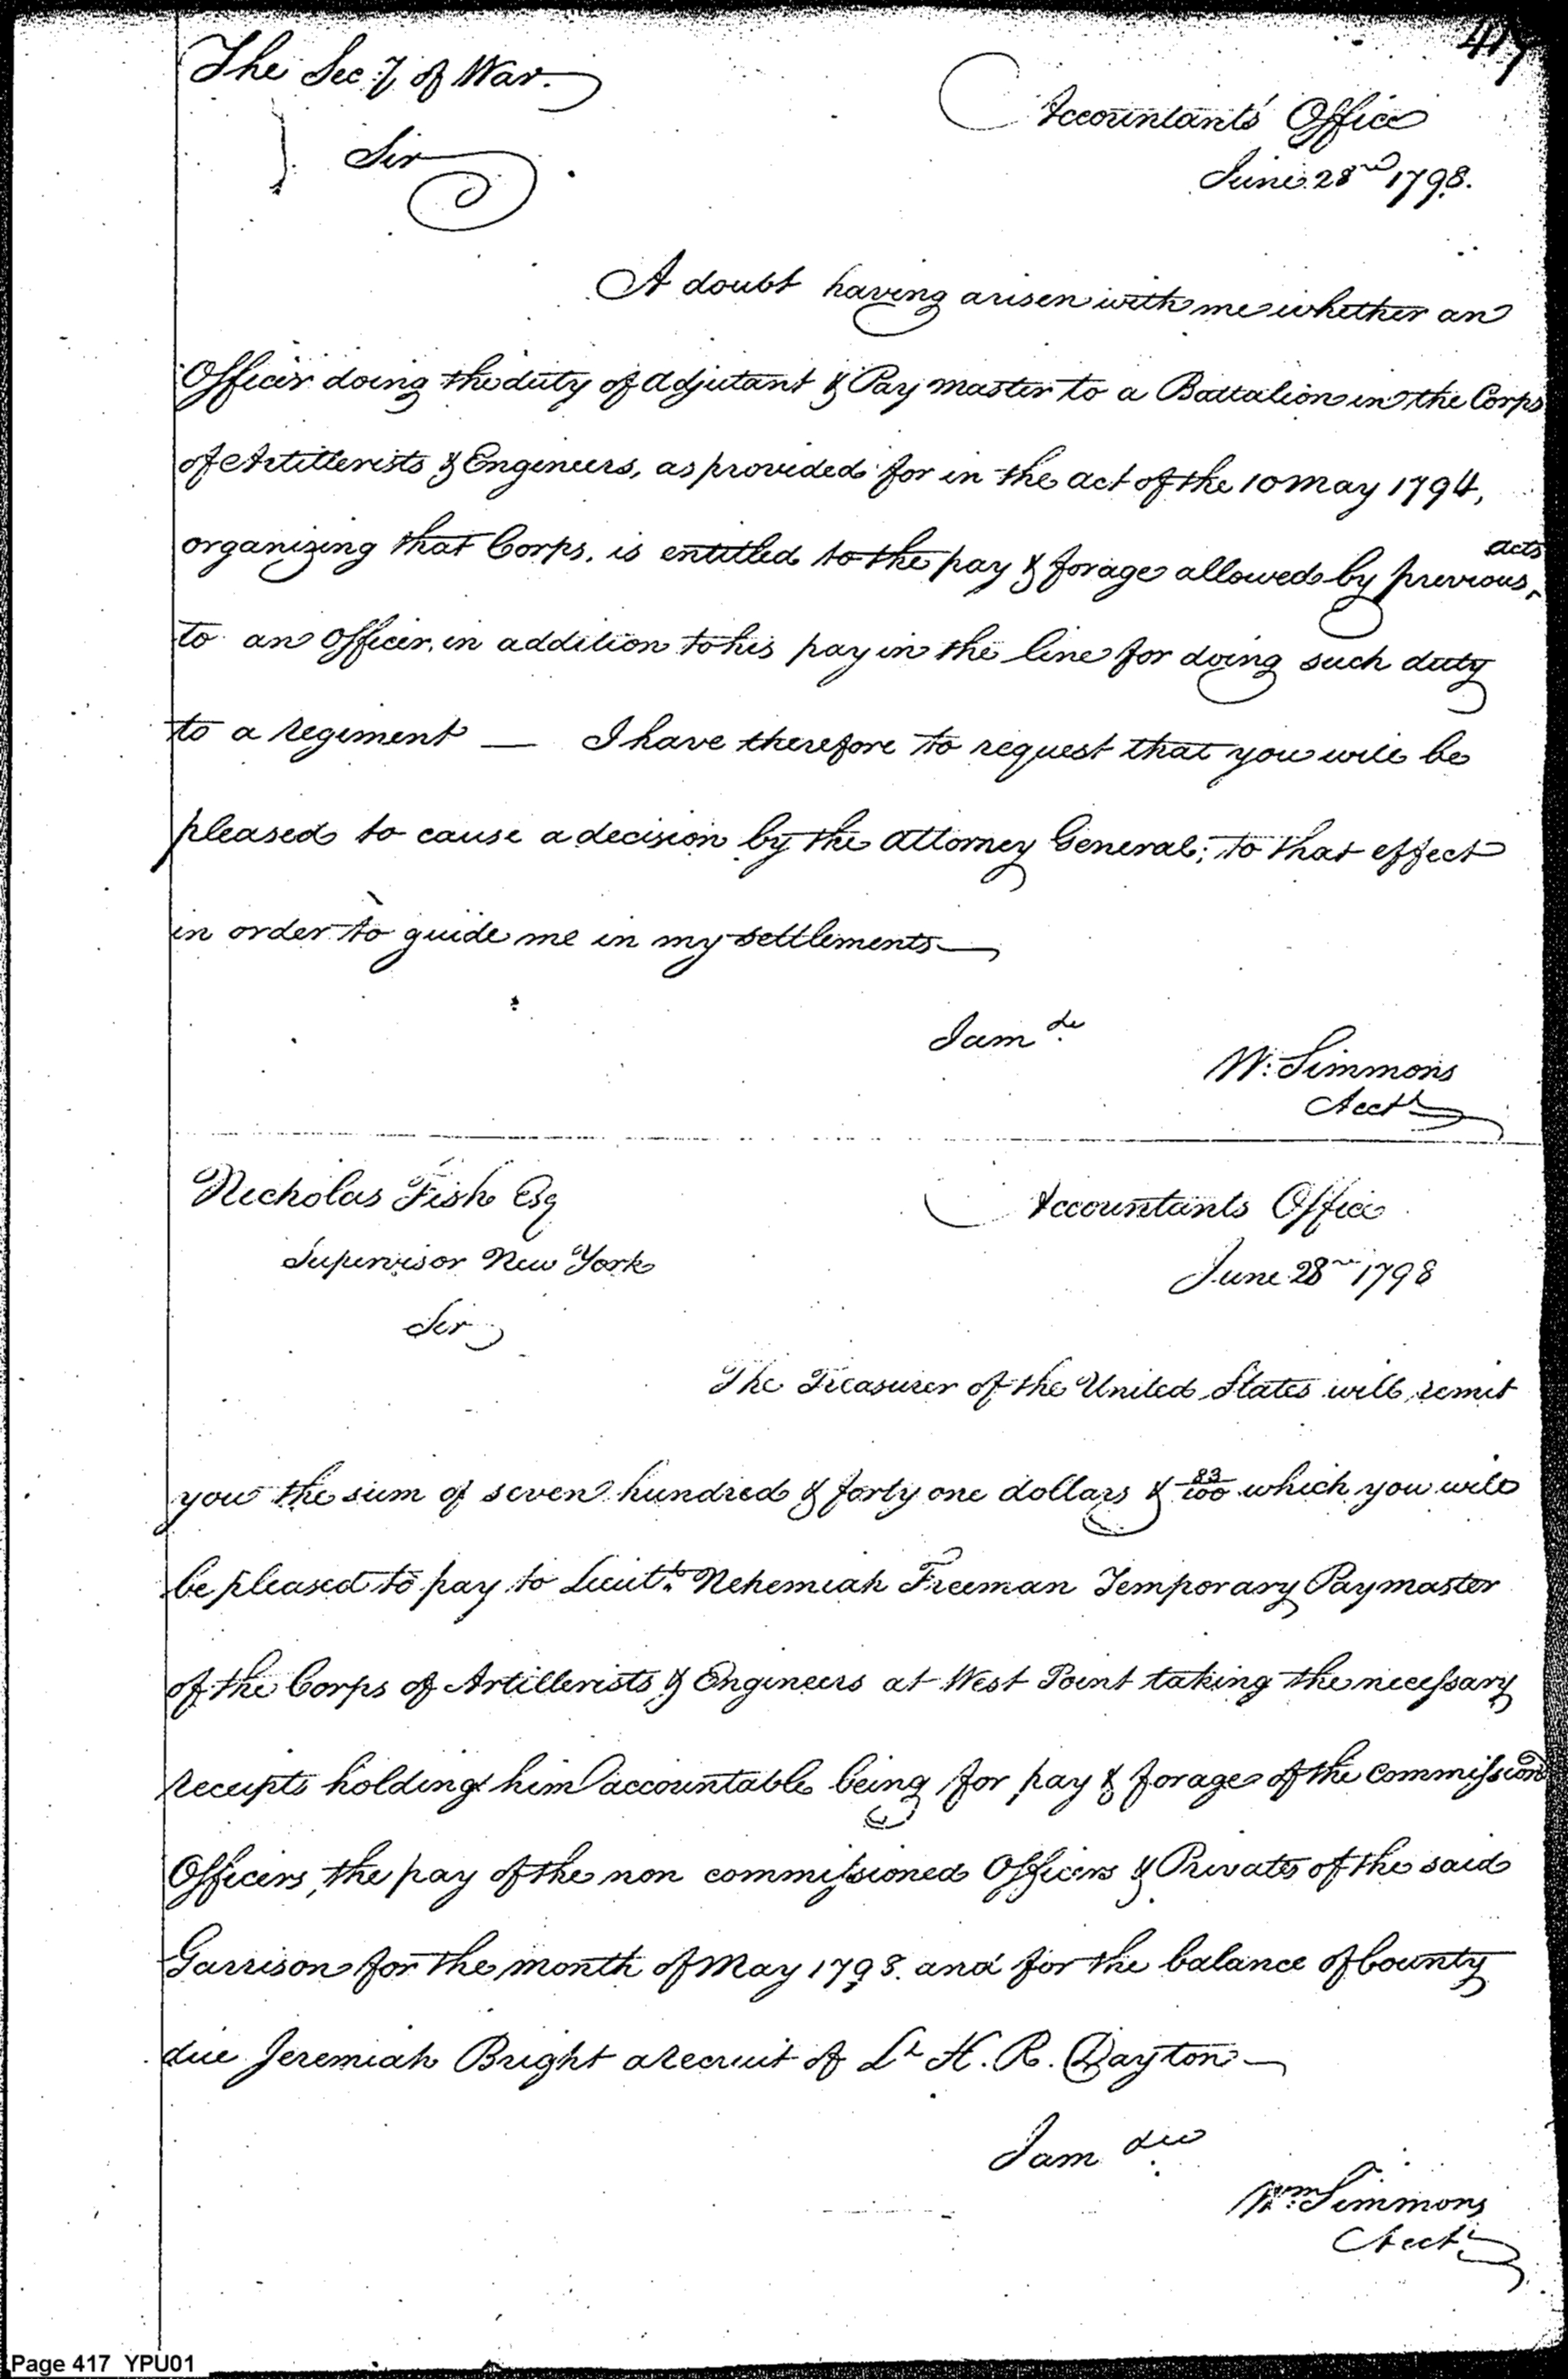 417
The Sec:y of War.
Accountants' Office
Sir
June 28nd 1798.
A doubt having arisen with me whether an
Officer doing the duty of Adjutant & Pay master to a Battalion in the Corps
of Artillerists & Engineers, as provided for in the act of the 10 May 1794,
organizing that Corps, is entitled to the pay & forage allowed by previous acts
to an Officer, in addition to his pay in the line for doing such duty
to a regiment — I have therefore to request that you will be
pleased to cause a decision by the Attorney General; to that effect
in order to guide me in my settlements—
I am &c.
W: Simmons
Acct
Nicholas Fish Esq
Accountants Office
Supervisor New York
June 28 1798
Sir
The Treasurer of the United States will remit
you the sum of seven hundred & forty one dollars & 83/100 which you will
be pleased to pay to Lieut. Nehemiah Freeman Temporary Paymaster
of the Corps of Artillerists & Engineers at West Point taking the necessary
receipts holding him accountable being for pay & forage of the Commission
Officers, the pay of the non commissioned Officers & Privates of the said
Garrison for the month of May 1798. and for the balance of bounty
due Jeremiah Bright a recruit of Lt H. R. Dayton—
I am
Wm: Simmons
Acct
Page 417 YPU01